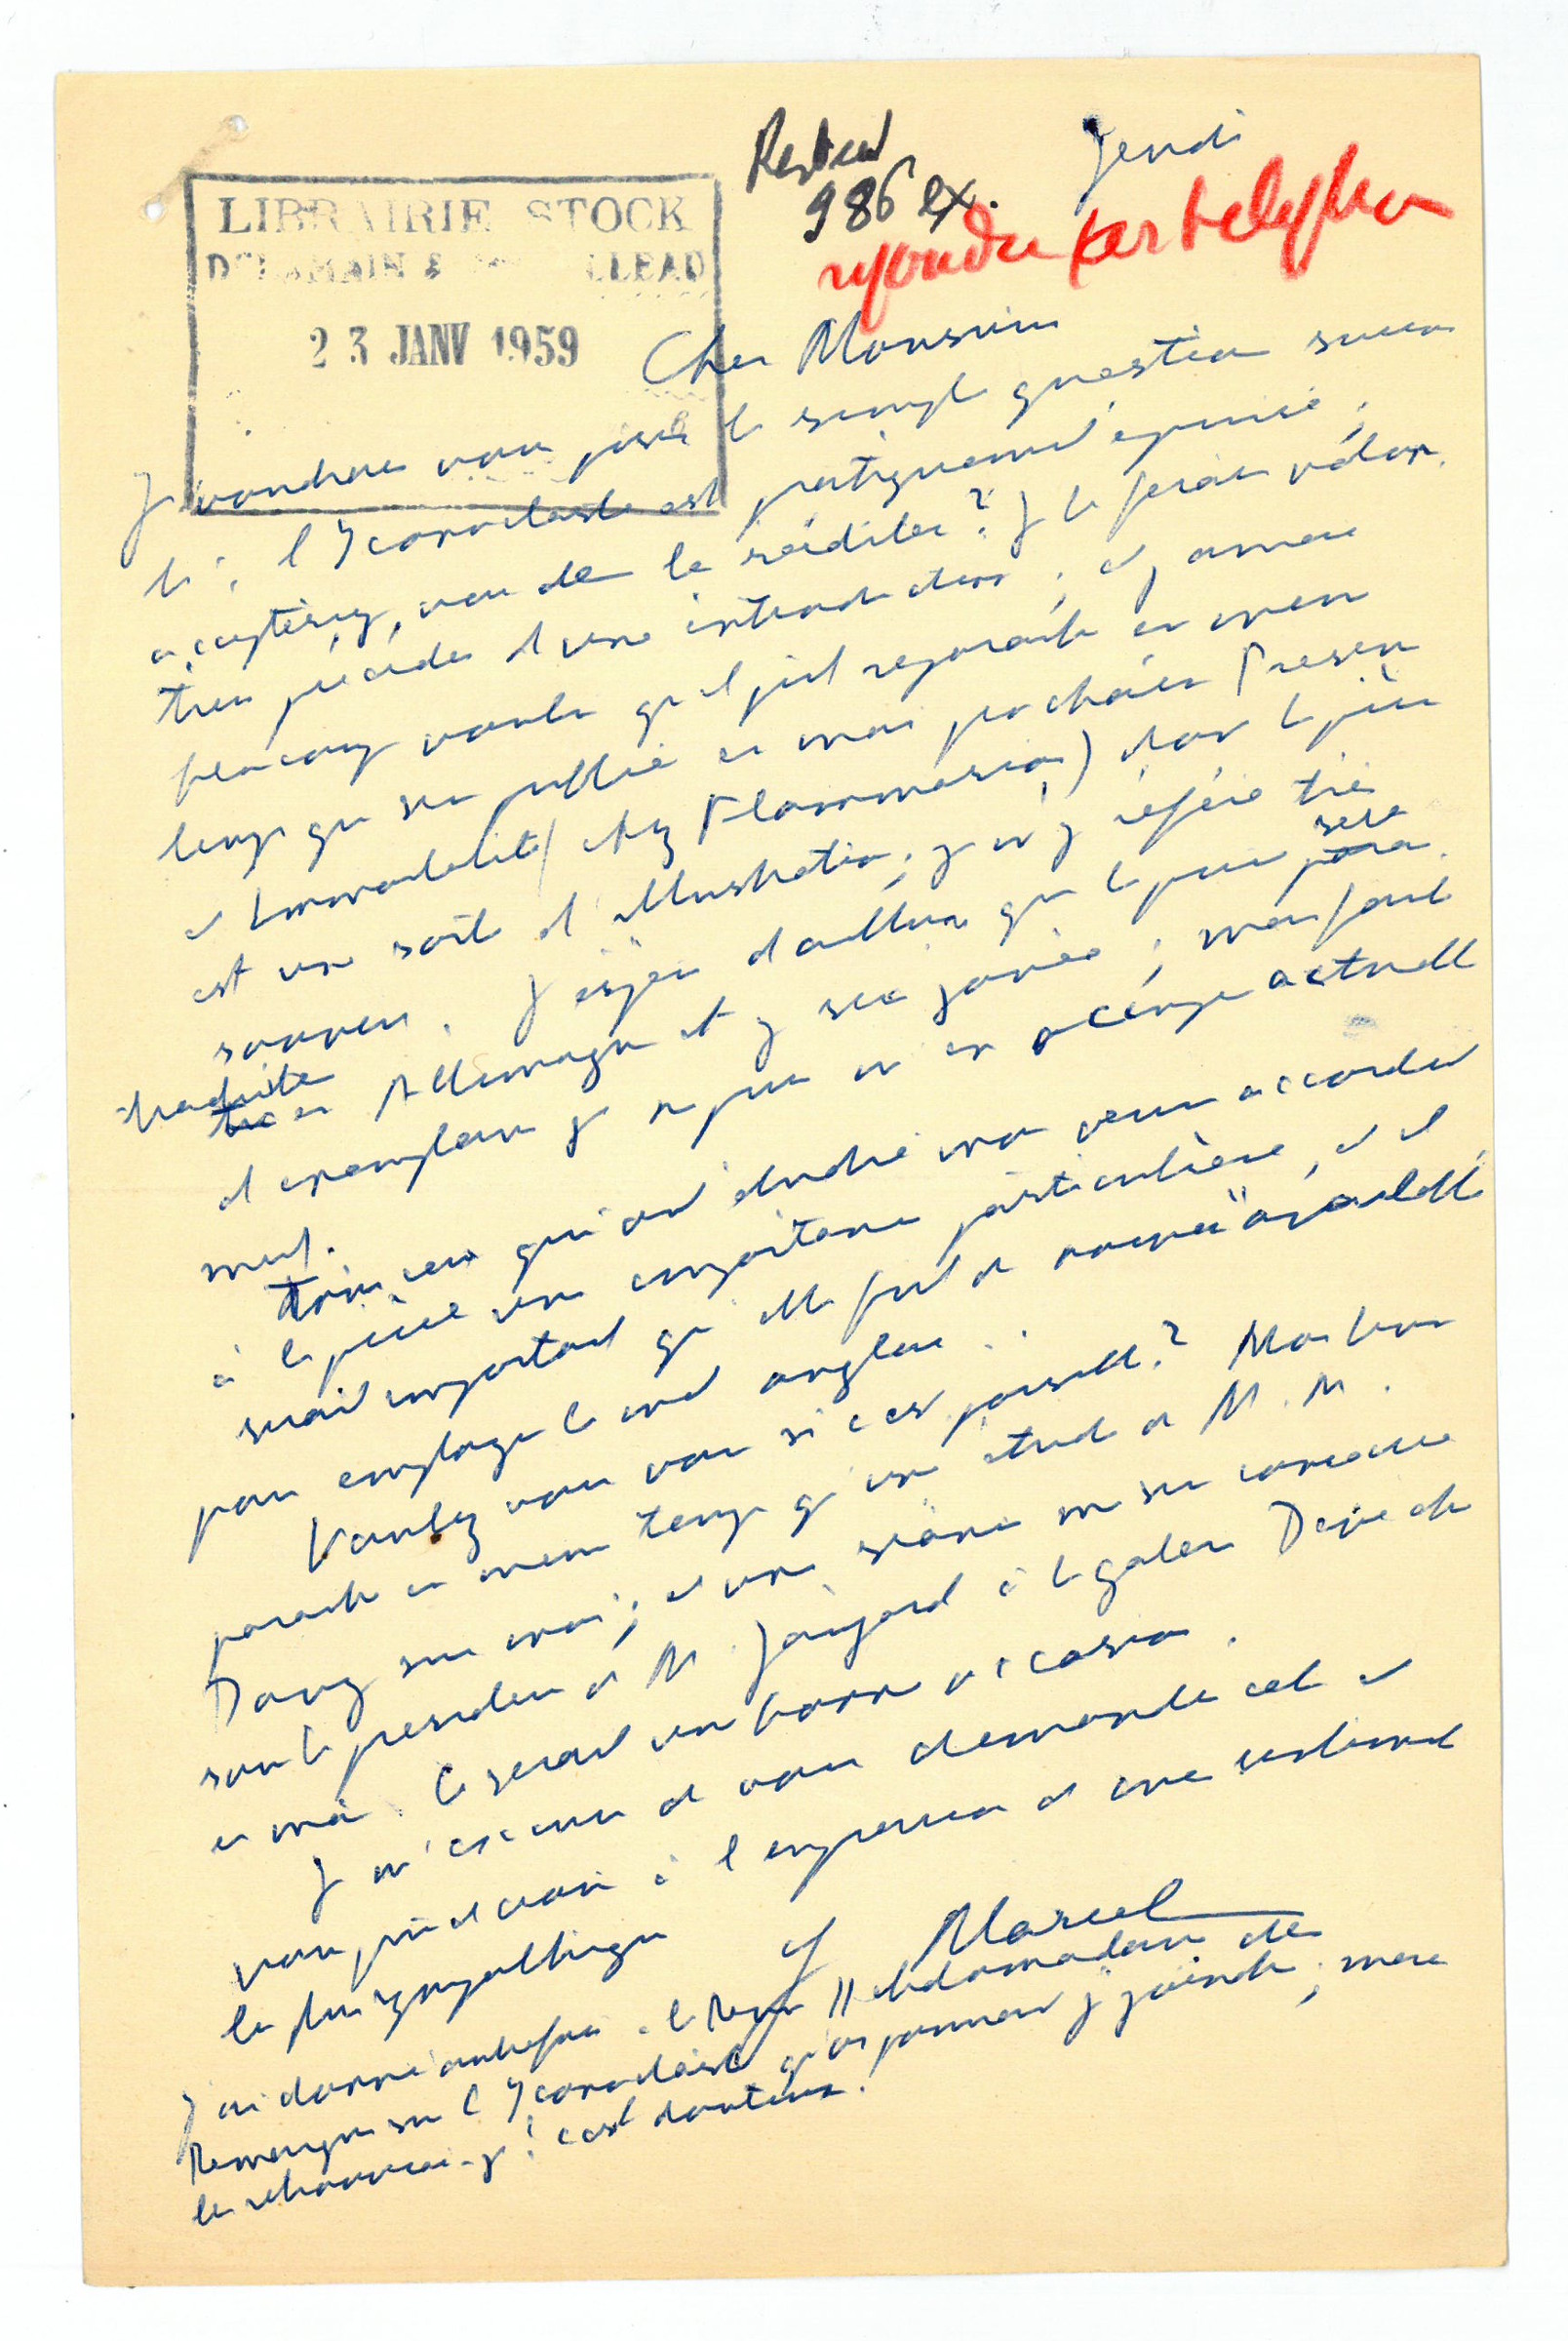 Jeudi
Restent
986 ex.
répondu par téléphon
LIBRAIRIE STOCK
DELAMAIN & BOUTELLEAU
23 JANV 1959
Cher Monsieur
Je voudrais vous poser la simple question suivan
te : l'Iconoclaste est pratiquement épuisé ;
accepteriez vous de le rééditer ? Je le ferais volon
tiers précéder d'une introduction ; et j'aimerais
beaucoup voulu qu'il put reparaitre en même
temps que sera publié en mai prochain Présence
et Immortalité (chez Flammarion) dont la pièce
est une sorte d'illustration ; je m'y réfère très
souvent. J'espère d'ailleurs que la pièce sera
traduite en Allemagne et y sera jouée ; mais faute
d'exemplaires je ne puis m'en occuper actuelle
ment.
Tous ceux qui ont étudié mon oeuvre accordent
à la pièce une importance particulière, et il
serait important qu'elle fut de nouveau "available"
pour employer le mot anglais.
Voulez vous voir si c'est possible ? Mon livre
paraitra en même temps qu'une étude de M. M.
Davy sur moi ; et une séance me sera consacrée
sous la présidence de M. Jaujard à la galerie
en mai. Ce serait une bonne occasion.
Je m'excuse de vous demander cela et
vous prie de croire à l'expression de mes sentiments
les plus sympathiques
G Marcel
J'ai donné autrefois à la Revue Hebdomadaire des
Remarques sur l'Iconoclaste qu'on pourrait y joindre ; mais
les retrouverai-je ? c'est douteux !